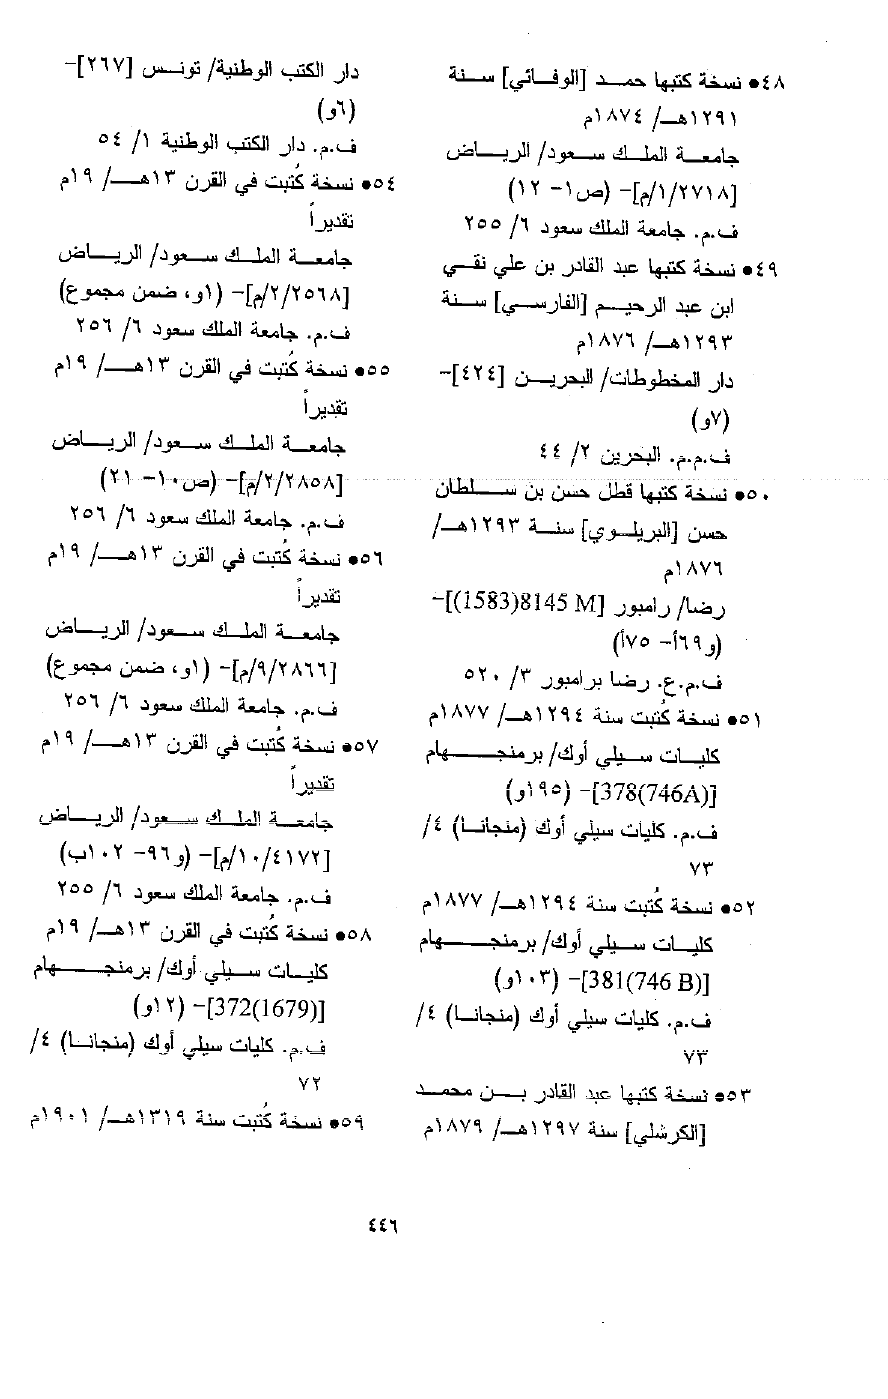 ٤٨• نسخة كتبها حمد [الوفائي] سنة
١٢٩١هـ/ ١٨٧٤م
جامعة الملك سعود/ الرياض
[٢٧١٨/١/م]- (ص١- ١٢)
ف.م. جامعة الملك سعود ٦/ ٢٥٥
٤٩• نسخة كتبها عبد القادر بن علي نقي
ابن عبد الرحيم [الفارسي] سنة
١٢٩٣هـ/ ١٨٧٦م
دار المخطوطات/ البحرين [٤٢٤]-
(٧و)
ف.م.م. البحرين ٢/ ٤٤
٥٠• نسخة كتبها قطل حسن بن سلطان
حسن [البريلوي] سنة ١٢٩٣هـ/
١٨٧٦م
رضا/ رامبور [8145 M(1583)]-
(و٦٩أ- ٧٥أ)
ف.م.ع. رضا برامبور ٣/ ٥٢٠
٥١• نسخة كُتبت سنة ١٢٩٤هـ/ ١٨٧٧م
كليات سيلي أوك/ برمنجهام
[378(746A)]- (١٩٥و)
ف.م. كليات سيلي أوك (منجانا) ٤/
٧٣
٥٢• نسخة كُتبت سنة ١٢٩٤هـ/ ١٨٧٧م
كليات سيلي أوك/ برمنجهام
[381(746 B)]- (١٠٣و)
ف.م. كليات سيلي أوك (منجانا) ٤/
٧٣
٥٣• نسخة كتبها عبد القادر بن محمد
[الكرشلي] سنة ١٢٩٧هـ/ ١٨٧٩م
دار الكتب الوطنية/ تونس [٢٦٧]-
(٦و)
ف.م. دار الكتب الوطنية ١/ ٥٤
٥٤• نسخة كُتبت في القرن ١٣هـ/ ١٩م
تقديراً
جامعة الملك سعود/ الرياض
[٢٥٦٨/٢/م]- (١و، ضمن مجموع)
ف.م. جامعة الملك سعود ٦/ ٢٥٦
٥٥• نسخة كُتبت في القرن ١٣هـ/ ١٩م
تقديراً
جامعة الملك سعود/ الرياض
[٢٨٥٨/٢/م]- (ص١٠- ٢١)
ف.م. جامعة الملك سعود ٦/ ٢٥٦
٥٦• نسخة كُتبت في القرن ١٣هـ/ ١٩م
تقديراً
جامعة الملك سعود/ الرياض
[٢٨٦٦/٩/م]- (١و، ضمن مجموع)
ف.م. جامعة الملك سعود ٦/ ٢٥٦
٥٧• نسخة كُتبت في القرن ١٣هـ/ ١٩م
تقديراً
جامعة الملك سعود/ الرياض
[٤١٧٢/١٠/م]- (و٩٦- ١٠٢ب)
ف.م. جامعة الملك سعود ٦/ ٢٥٥
٥٨• نسخة كُتبت في القرن ١٣هـ/ ١٩م
كليات سيلي أوك/ برمنجهام
[372(1679)]- (١٢و)
ف.م. كليات سيلي أوك (منجانا) ٤/
٧٢
٥٩• نسخة كُتبت سنة ١٣١٩هـ/ ١٩٠١م
٤٤٦